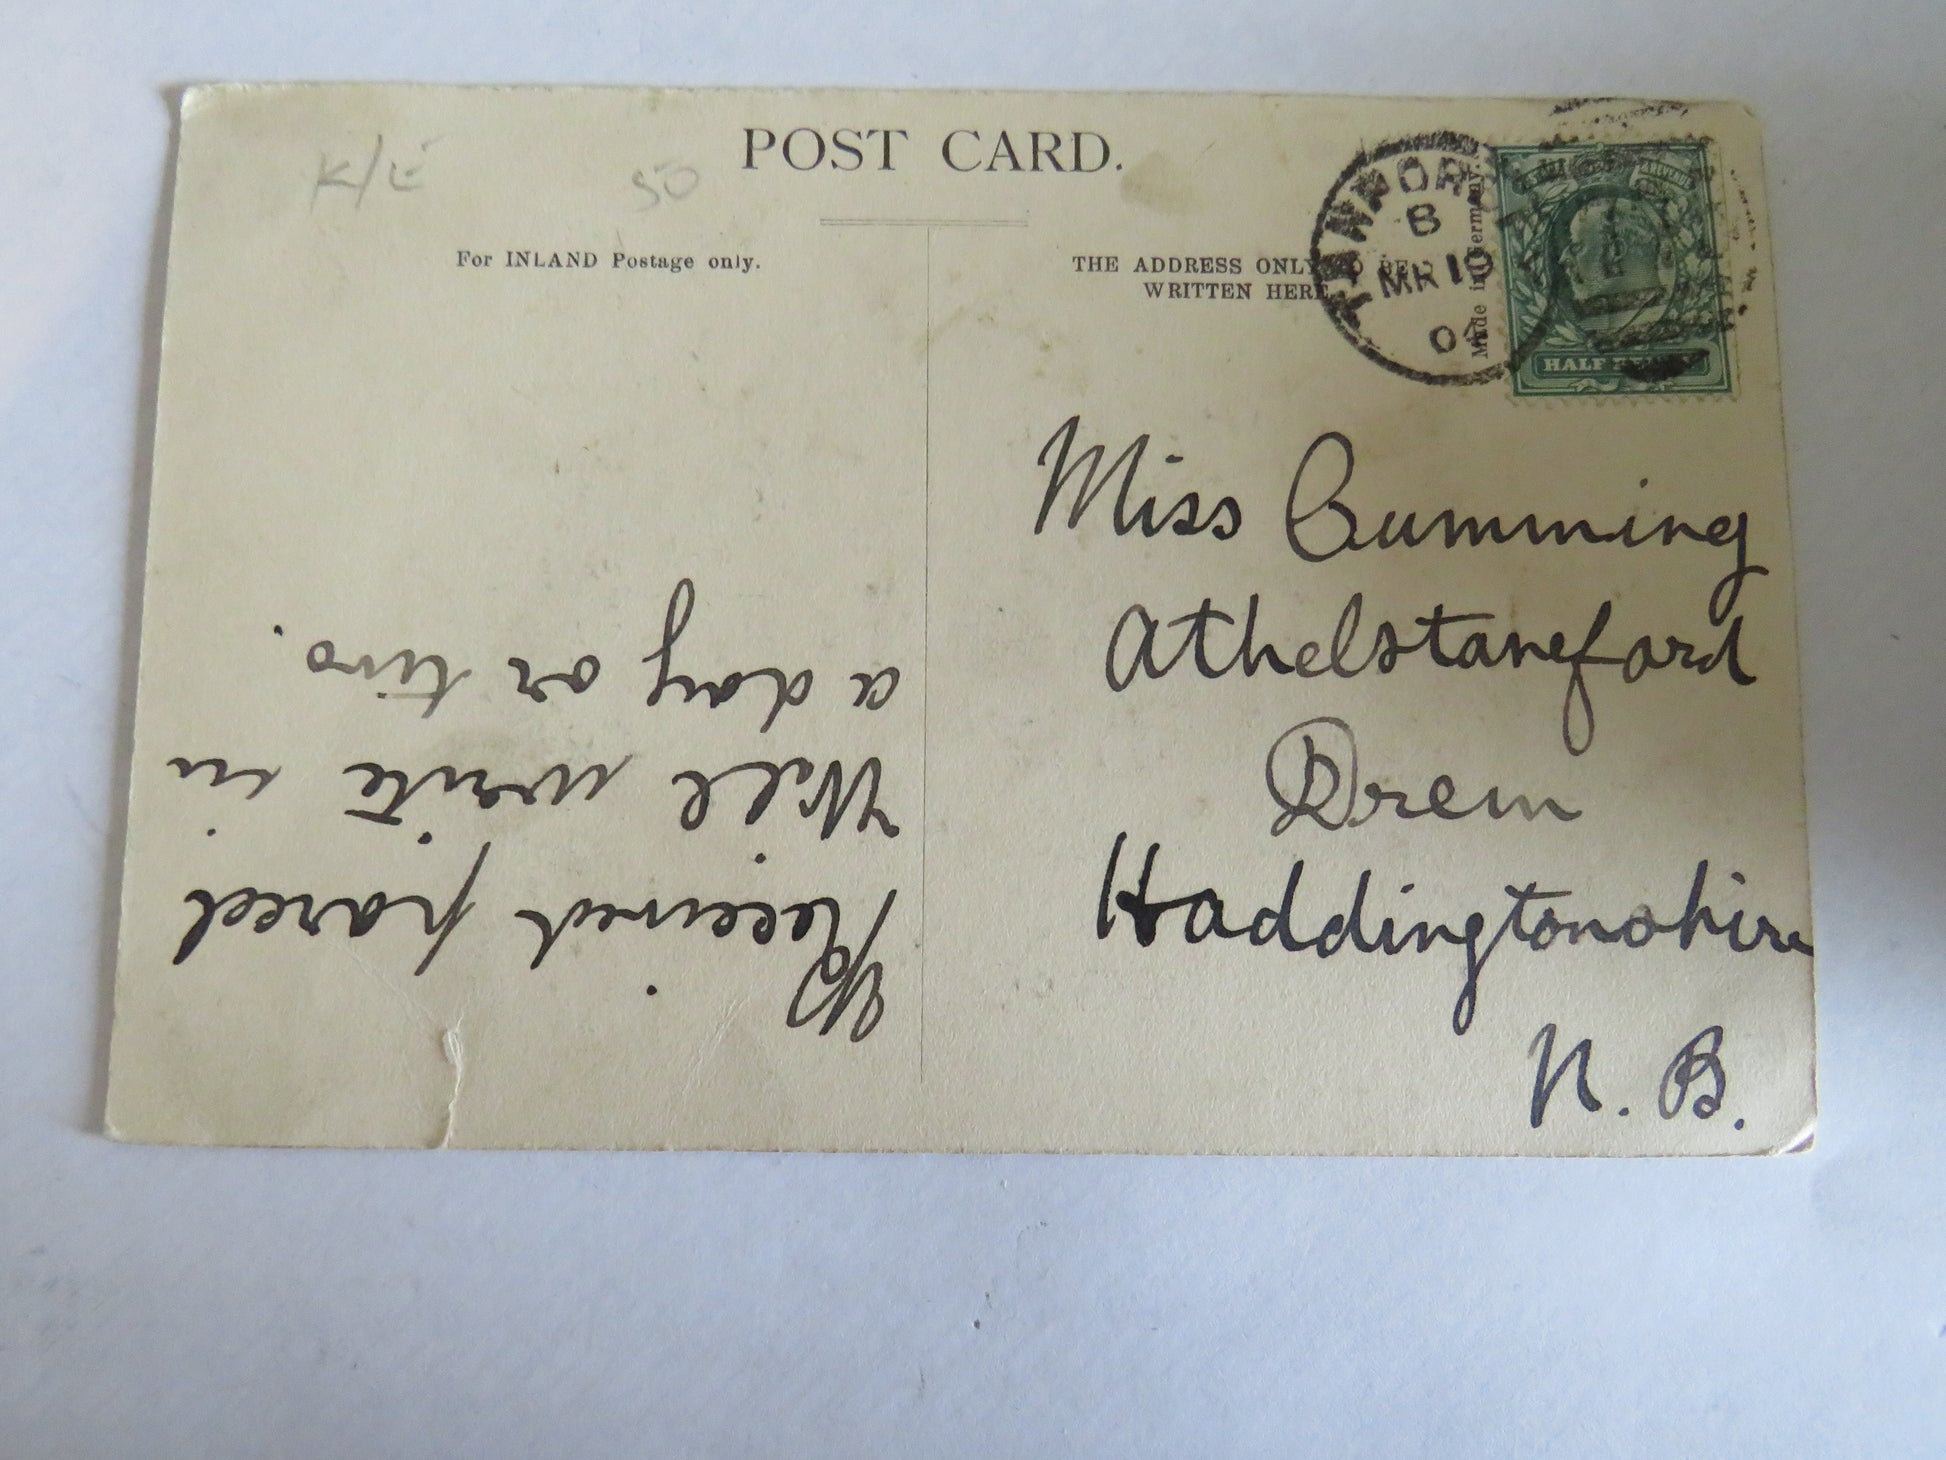 POST CARD.
K/E
50
For INLAND Postage only.
THE ADDRESS ONLY TO BE
WRITTEN HERE
Made in Germany.
B
MR 10
HALF PENNY
Miss Cumming
Athelstaneford
Drem
Haddingtonshire
N. B.
Received parcel
Will write in
a day or two.